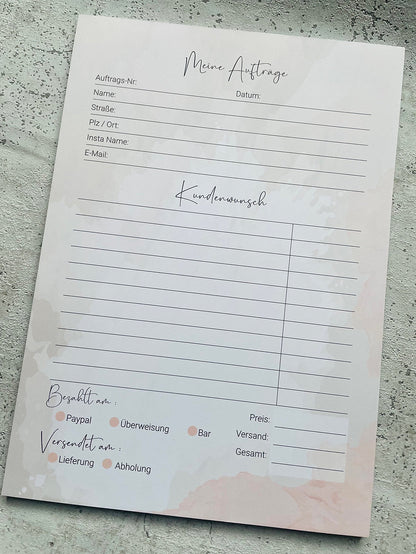 Meine Aufträge
Auftrags-Nr:
Name: Datum:
Straße:
Plz / Ort:
Insta Name:
E-Mail:
Kundenwunsch
Bezahlt am :
Paypal Überweisung Bar
Versendet am :
Lieferung Abholung
Preis:
Versand:
Gesamt: